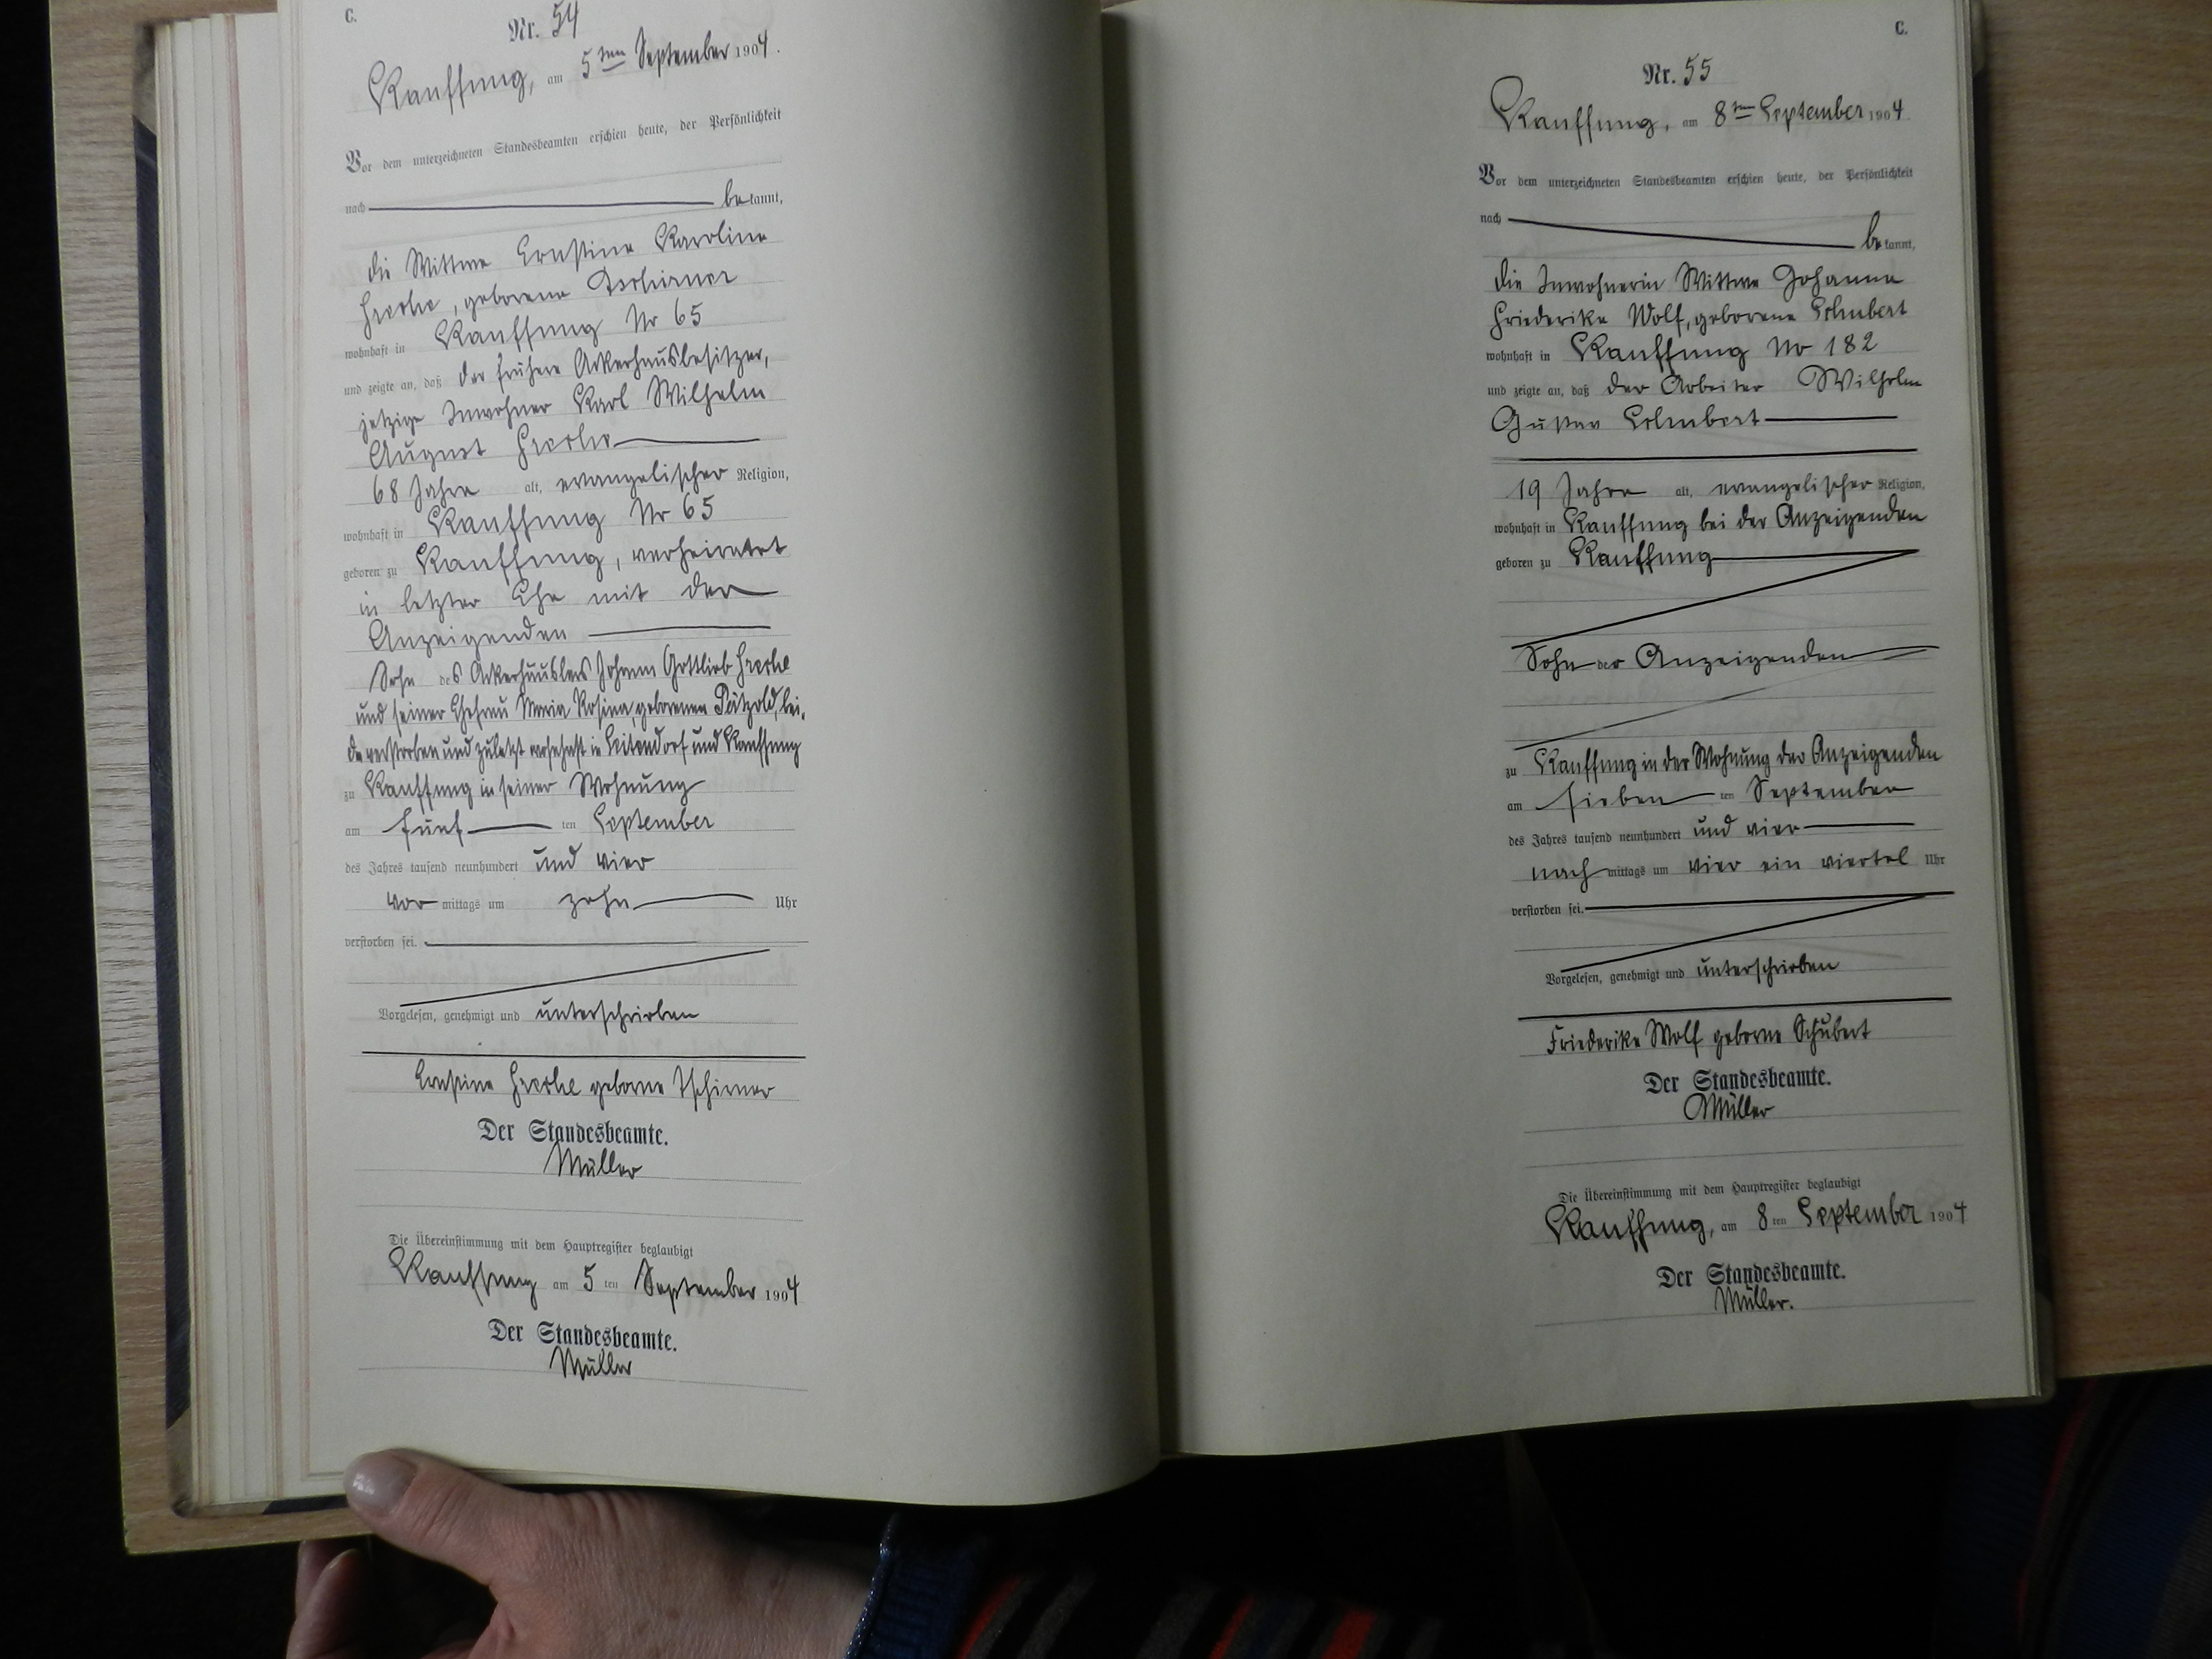 C.
Nr. 54
Kauffung, am 5ten September 1904.
Vor dem unterzeichneten Standesbeamten erschien heute, der Persönlichkeit
nach bekannt,
die Wittwe Ernstine Karoline
geborene Tschirner
wohnhaft in Kauffung Nr 65
und zeigte an, daß der frühere Ackerhausbesitzer,
jetzige Inwohner Karl Wilhelm
August
68 Jahre alt, evangelischer Religion,
wohnhaft in Kauffung Nr 65
geboren zu Kauffung, verheiratet
in letzter Ehe mit der
Anzeigenden
Sohn des Ackerhäuslers Johann Gottlieb
und seiner Ehefrau Maria Rosina, geborenen Pätzold, bei-
de verstorben und zuletzt wohnhaft in Seitendorf und Kauffung
zu Kauffung in seiner Wohnung
am fünf ten September
des Jahres tausend neunhundert und vier
vor mittags um zehn Uhr
verstorben sei.
Vorgelesen, genehmigt und unterschrieben
Ernstine geborne Tschirner
Der Standesbeamte.
Müller
Die Übereinstimmung mit dem Hauptregister beglaubigt
Kauffung am 5 ten September 1904
Der Standesbeamte.
Müller
C.
Nr. 55
Kauffung, am 8ten September 1904.
Vor dem unterzeichneten Standesbeamten erschien heute, der Persönlichkeit
nach bekannt,
die Inwohnerin Wittwe Johanna
Friederike Wolf, geborene Schubert
wohnhaft in Kauffung No 182
und zeigte an, daß der Arbeiter Wilhelm
Gustav Schubert
19 Jahre alt, evangelischer Religion,
wohnhaft in Kauffung bei der Anzeigenden
geboren zu Kauffung
Sohn der Anzeigenden
zu Kauffung in der Wohnung der Anzeigenden
am sieben ten September
des Jahres tausend neunhundert und vier
nach mittags um vier ein viertel Uhr
verstorben sei.
Vorgelesen, genehmigt und unterschrieben
Friederike Wolf geborne Schubert
Der Standesbeamte.
Müller
Die Übereinstimmung mit dem Hauptregister beglaubigt
Kauffung, am 8 ten September 1904
Der Standesbeamte.
Müller.